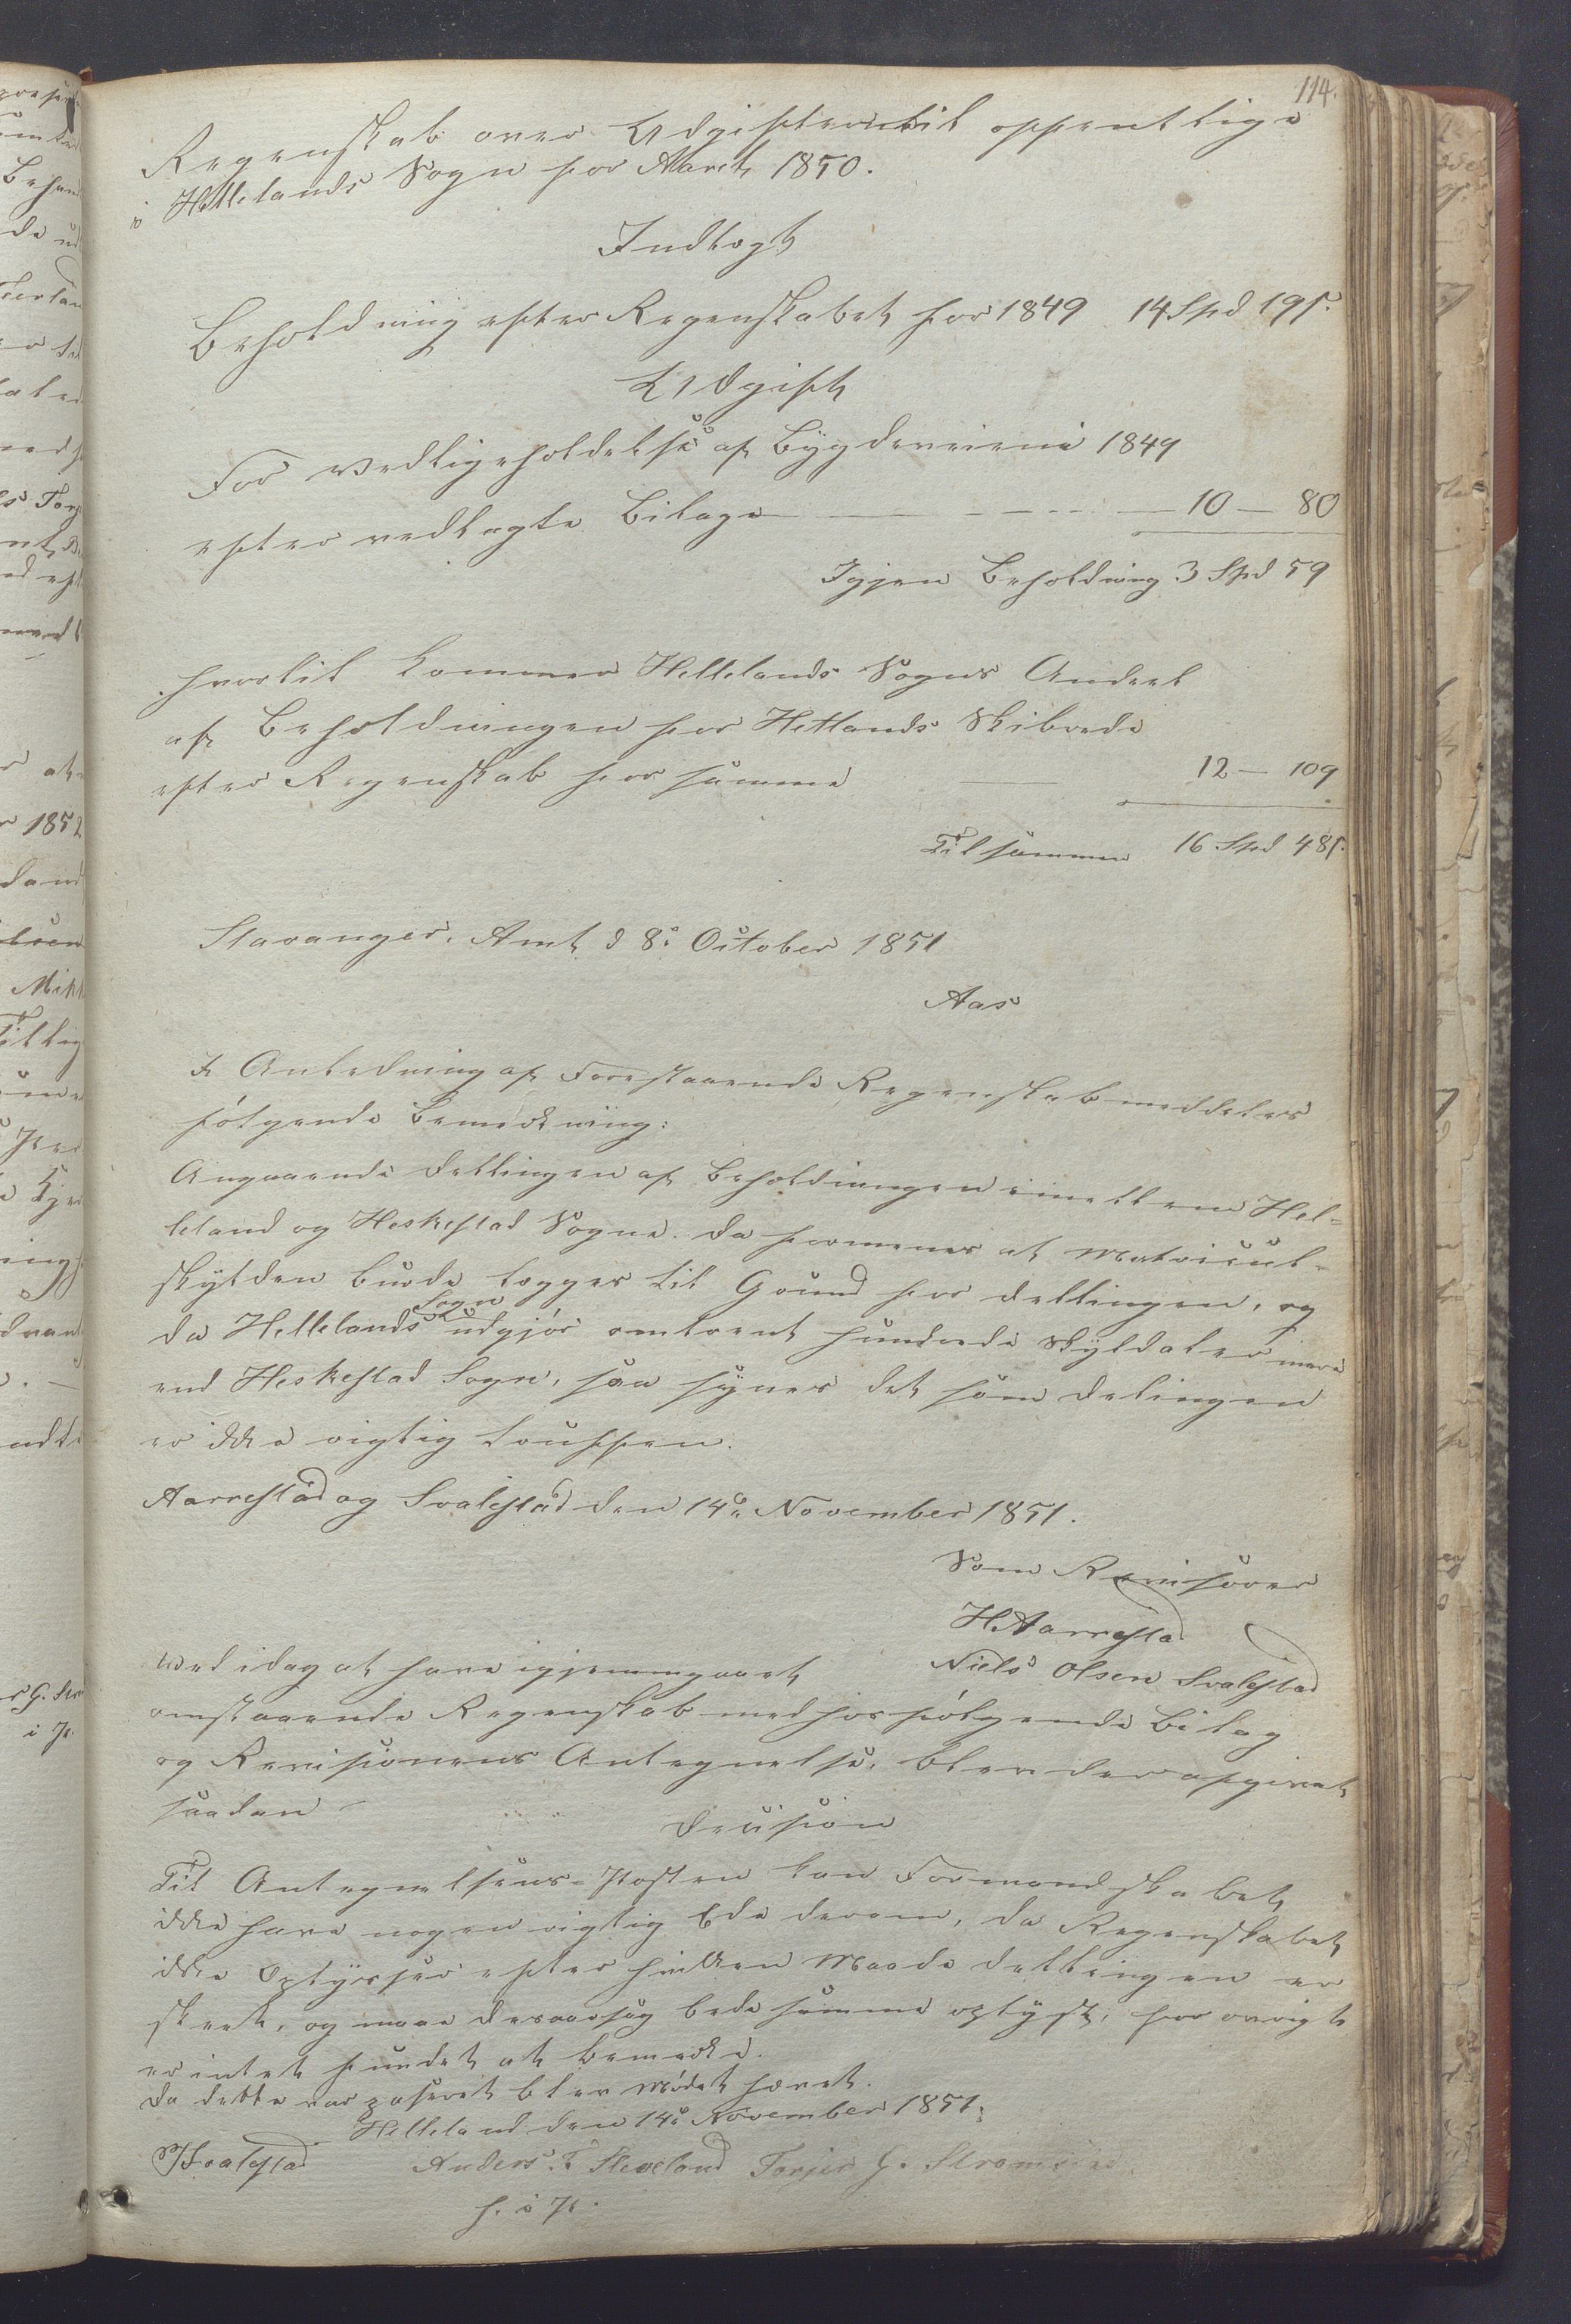 114.
Regenskab over Udgifterne til offentlige
i Hellelands Sogn for Aaret 1850.
Indtægt
Beholdning efter Regenskabet for 1849 14 Spd 19 s.
Udgift
For Vedligeholdelse af Bygdeveiene 1849
efter vedlagte Bilage 10 — 80
Igjen Beholdning 3 Spd 59
hvortil kommer Hellelands Sogns Andeel
af Beholdningen for Hetlands Skibrede
efter Regenskab for samme 12 — 109
Tilsammen 16 Spd 48 s.
Stavanger Amt d 8de October 1851
Aas
I Anledning af Forestaaende Regenskab meddeles
følgende Bemerkning:
Angaaende Dellingen af Beholdningen imellem Hel-
leland og Heskestad Sogne. da formenes at Matricul-
skylden burde lægges til Grund for Dellingen, og
da Hellelands Sogn udgjør omtrent hundrede Skyldaler mere
end Heskestad Sogn, saa synes det som Delingen
er ikke rigtig truffen.
Aarrestad og Svalestad den 14de November 1851.
Som Revisorer
H. Aarrestad
Niels Olsen Svalestad
Ved idag at have igjennemgaaet
omstaaende Regenskab med hosfølgende Bilag
og Revisionens Antegnelse, blev der afgivet
saadan
Decision
Til Antegnelsens-Posten kan Formandskabet
ikke have nogen rigtig Ede derom, da Regenskabet
ikke Oplysser efter hvilken Maade Dellingen er
skeet, og maa desaarsag bede samme oplyst, for øvrigt
er intet fundet at bemerke.
Da dette var passeret blev Mødet hævet.
Helleland den 14de November 1851.
Svalestad Anders T. Sleveland Torjer G. Strømstad
f. i P.